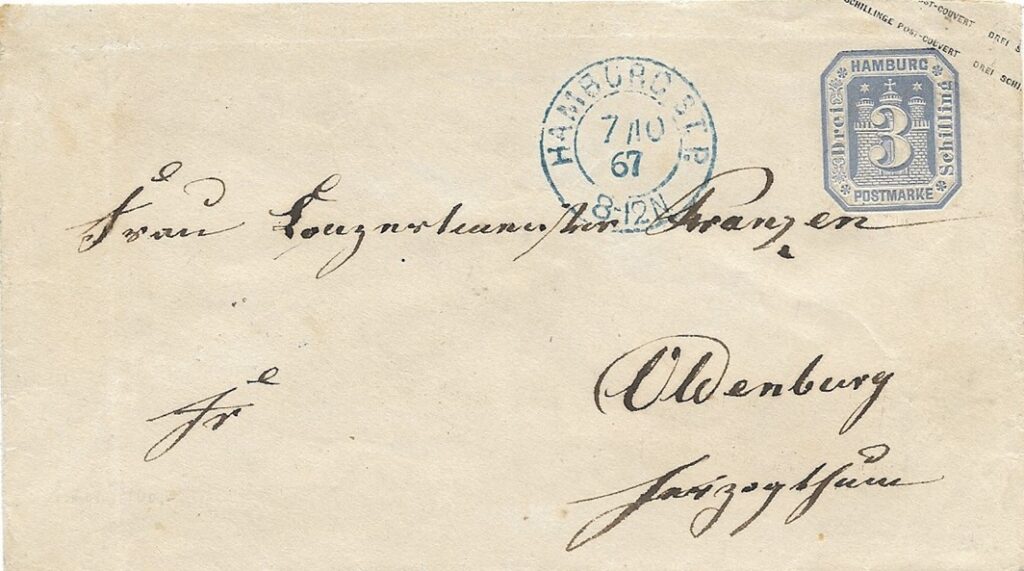 POST-COUVERT DREI S
SCHILLINGE POST-COUVERT DREI SCHI
HAMBURG
Drei
3
Schilling
POSTMARKE
HAMBURG ST. P.
7/10
67
8-12N
Frau Conzertmeister Franzen
Oldenburg
Fr
Herzogthum